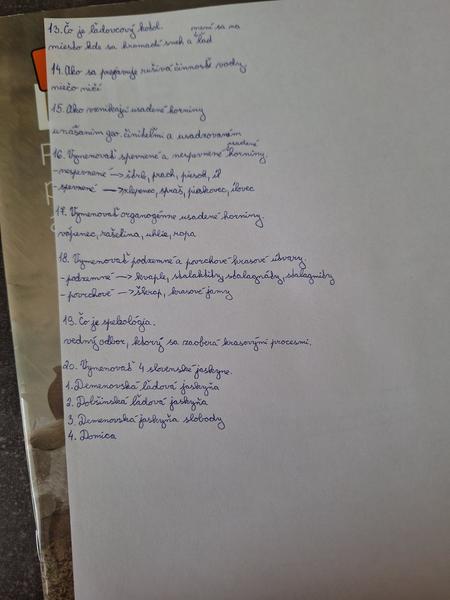 13. Čo je ľadovcový kotol.
mení sa na
miesto kde sa hromadí sneh a ľad
14. Ako sa prejavuje rušivá činnosť vody
niečo ničí
15. Ako vznikajú usadené horniny
unášaním geo. činiteľmi a usadzovaním
usadené
16. Vymenovať spevnené a nespevnené horniny.
-nespevnené → štrk, prach, piesok, íl
-spevnené → zlepenec, spraš, pieskovec, ílovec
17. Vymenovať organogénne usadené horniny.
vápenec, rašelina, uhlie, ropa
18. Vymenovať podzemné a povrchové krasové útvary.
-podzemné → kvaple, stalaktity, stalagnáty, stalagmity
-povrchové → škrap, krasové jamy
19. Čo je speleológia.
vedný odbor, ktorý sa zaoberá krasovými procesmi.
20. Vymenovať 4 slovenské jaskyne.
1. Demenovská ľadová jaskyňa
2. Dobšinská ľadová jaskyňa
3. Demenovská jaskyňa slobody
4. Domica